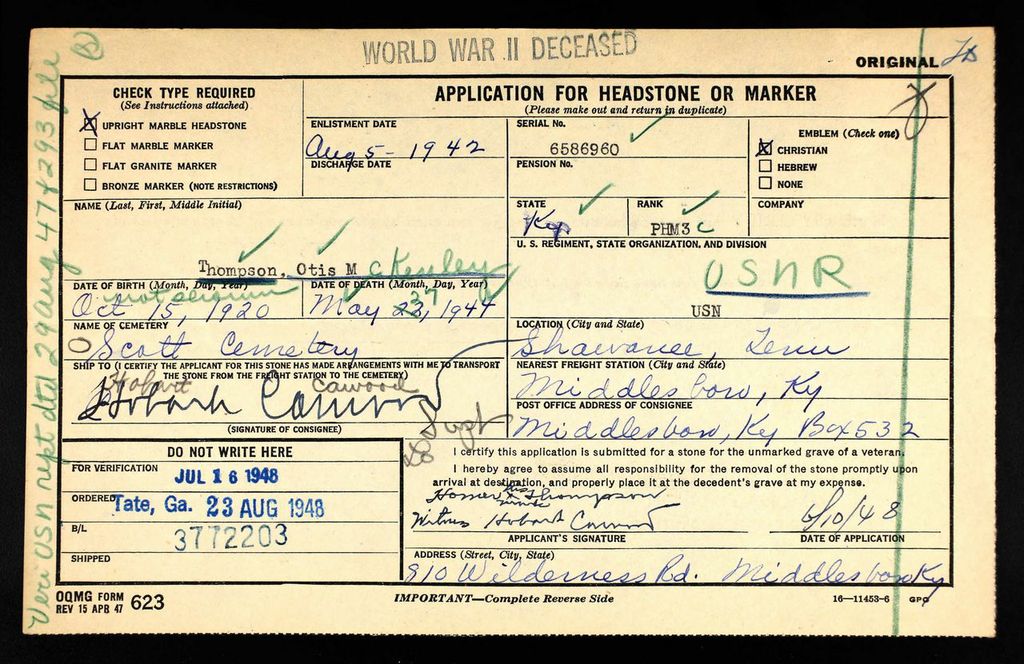 WORLD WAR II DECEASED
ORIGINAL
CHECK TYPE REQUIRED
(See Instructions attached)
X UPRIGHT MARBLE HEADSTONE
FLAT MARBLE MARKER
FLAT GRANITE MARKER
BRONZE MARKER (NOTE RESTRICTIONS)
APPLICATION FOR HEADSTONE OR MARKER
(Please make out and return in duplicate)
ENLISTMENT DATE
Aug 5 - 1942
DISCHARGE DATE
SERIAL No.
6586960
PENSION No.
EMBLEM (Check one)
X CHRISTIAN
HEBREW
NONE
NAME (Last, First, Middle Initial)
Thompson, Otis McKenley
STATE
Ky
RANK
PHM3c
COMPANY
U. S. REGIMENT, STATE ORGANIZATION, AND DIVISION
USNR
USN
DATE OF BIRTH (Month, Day, Year)
Oct 15, 1920
DATE OF DEATH (Month, Day, Year)
May 27, 1944
NAME OF CEMETERY
Scott Cemetery
LOCATION (City and State)
Shawanee, Tenn
SHIP TO (I CERTIFY THE APPLICANT FOR THIS STONE HAS MADE ARRANGEMENTS WITH ME TO TRANSPORT
THE STONE FROM THE FREIGHT STATION TO THE CEMETERY)
Hobart Cawood
Hobart Cawood
(SIGNATURE OF CONSIGNEE)
NEAREST FREIGHT STATION (City and State)
Middlesboro, Ky
POST OFFICE ADDRESS OF CONSIGNEE
Middlesboro, Ky Box 532
Supt
DO NOT WRITE HERE
FOR VERIFICATION
JUL 16 1948
ORDERED
Tate, Ga. 23 AUG 1948
B/L
3772203
SHIPPED
I certify this application is submitted for a stone for the unmarked grave of a veteran.
I hereby agree to assume all responsibility for the removal of the stone promptly upon
arrival at destination, and properly place it at the decedent's grave at my expense.
Homer his X mark Thompson
Witness Hobart Cawood
APPLICANT'S SIGNATURE
6/10/48
DATE OF APPLICATION
ADDRESS (Street, City, State)
810 Wilderness Rd. Middlesboro Ky
OQMG FORM
REV 15 APR 47 623
IMPORTANT—Complete Reverse Side
16—11453-6 GPO
Veri USN rept dtd 29 Aug 47 4293 file